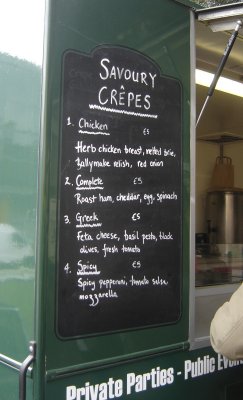 SAVOURY
CRÊPES
1. Chicken £5
Herb chicken breast, melted brie,
Ballymake relish, red onion
2. Complete £5
Roast ham, cheddar, egg, spinach
3. Greek £5
feta cheese, basil pesto, black
olives, fresh tomato
4. Spicy £5
Spicy pepperoni, tomato salsa,
mozzarella
Private Parties - Public Events